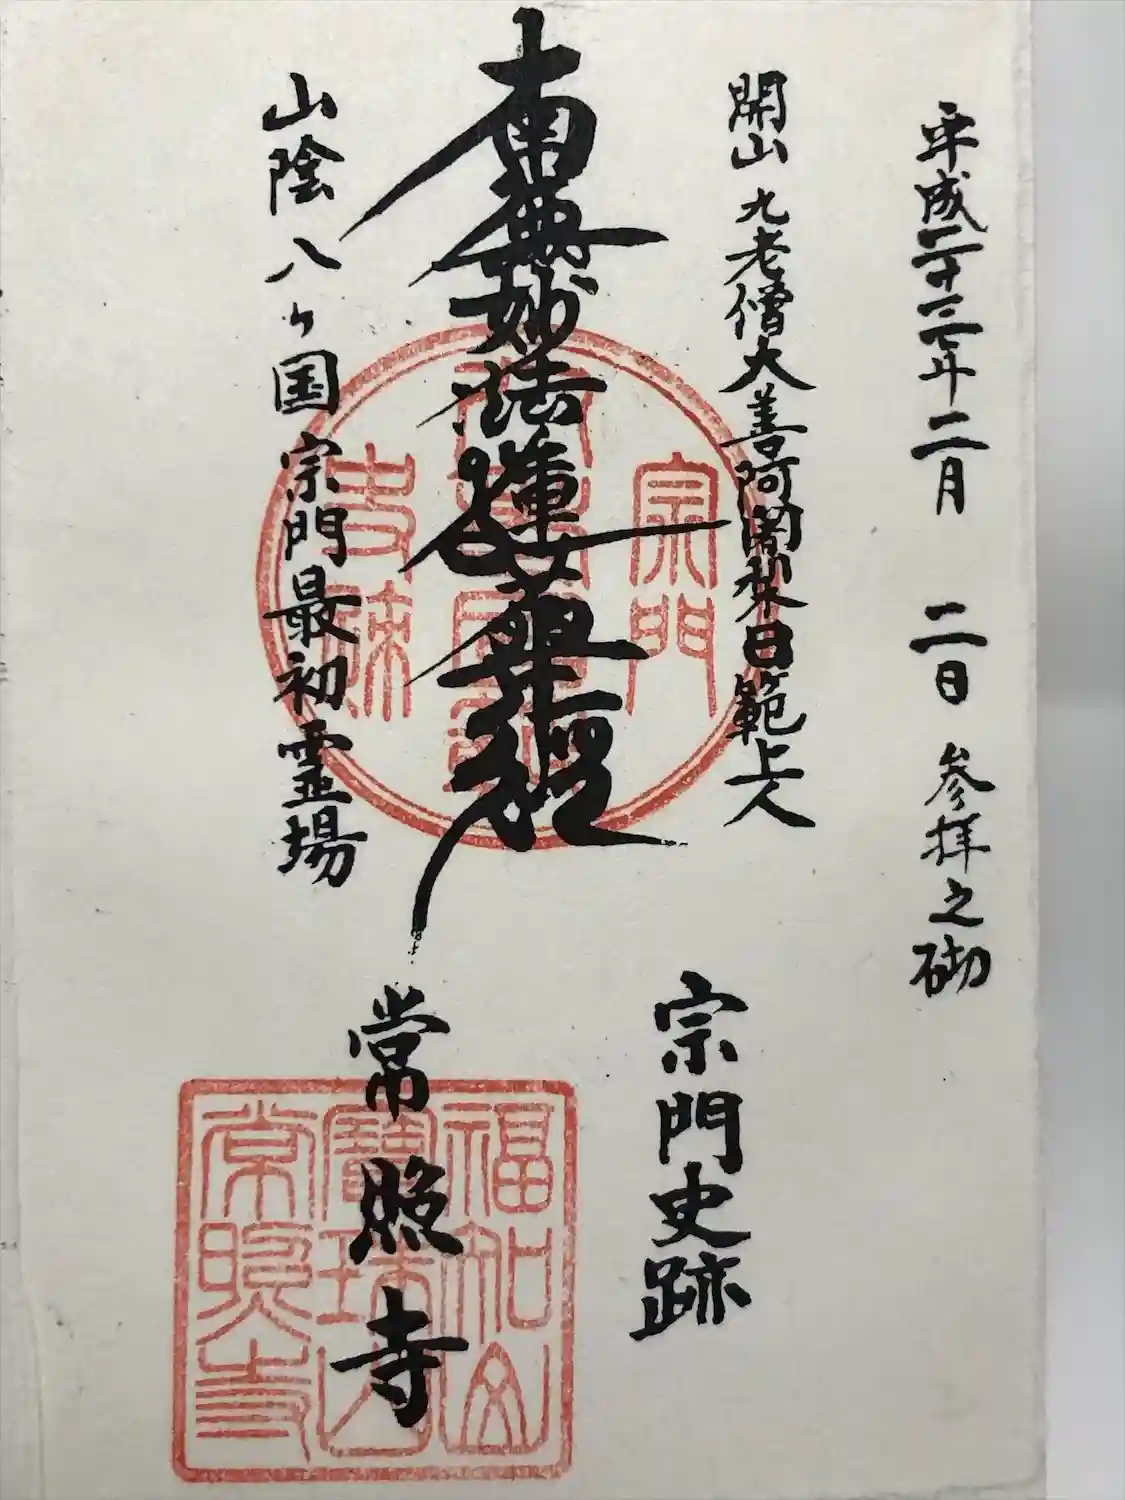 平成二十三年二月 二日 参拝之砌
開山 九老僧大善阿闍梨日範上人
宗門史跡
南無妙法蓮華經
常照寺
山陰八ヶ国宗門最初霊場
宗門
史跡
福知山
寶珠山
常照寺